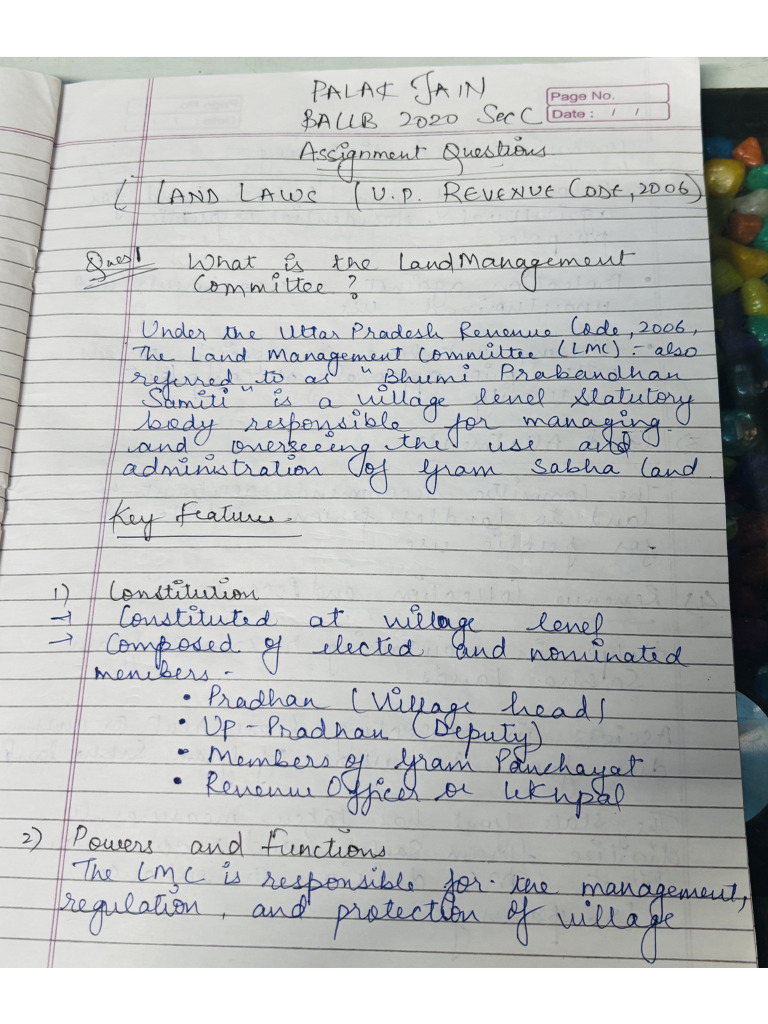 PALAK JAIN
Page No.
BALLB 2020 Sec C
Date : / /
Assignment Questions
( LAND LAWS (U.P. REVENUE CODE, 2006)
Ques 1 What is the Land Management
Committee ?
Under the Uttar Pradesh Revenue Code, 2006,
The Land Management Committee (LMC) - also
referred to as "Bhumi Prabandhan
Samiti" is a village level statutory
body responsible for managing
and overseeing the use and
administration of Gram Sabha land.
Key Features -
1) Constitution
→ Constituted at village level
→ Composed of elected and nominated
members -
• Pradhan (Village head)
• UP - Pradhan (Deputy)
• Members of Gram Panchayat
• Revenue Officer or Lekhpal
2) Powers and Functions
The LMC is responsible for the management,
regulation, and protection of village